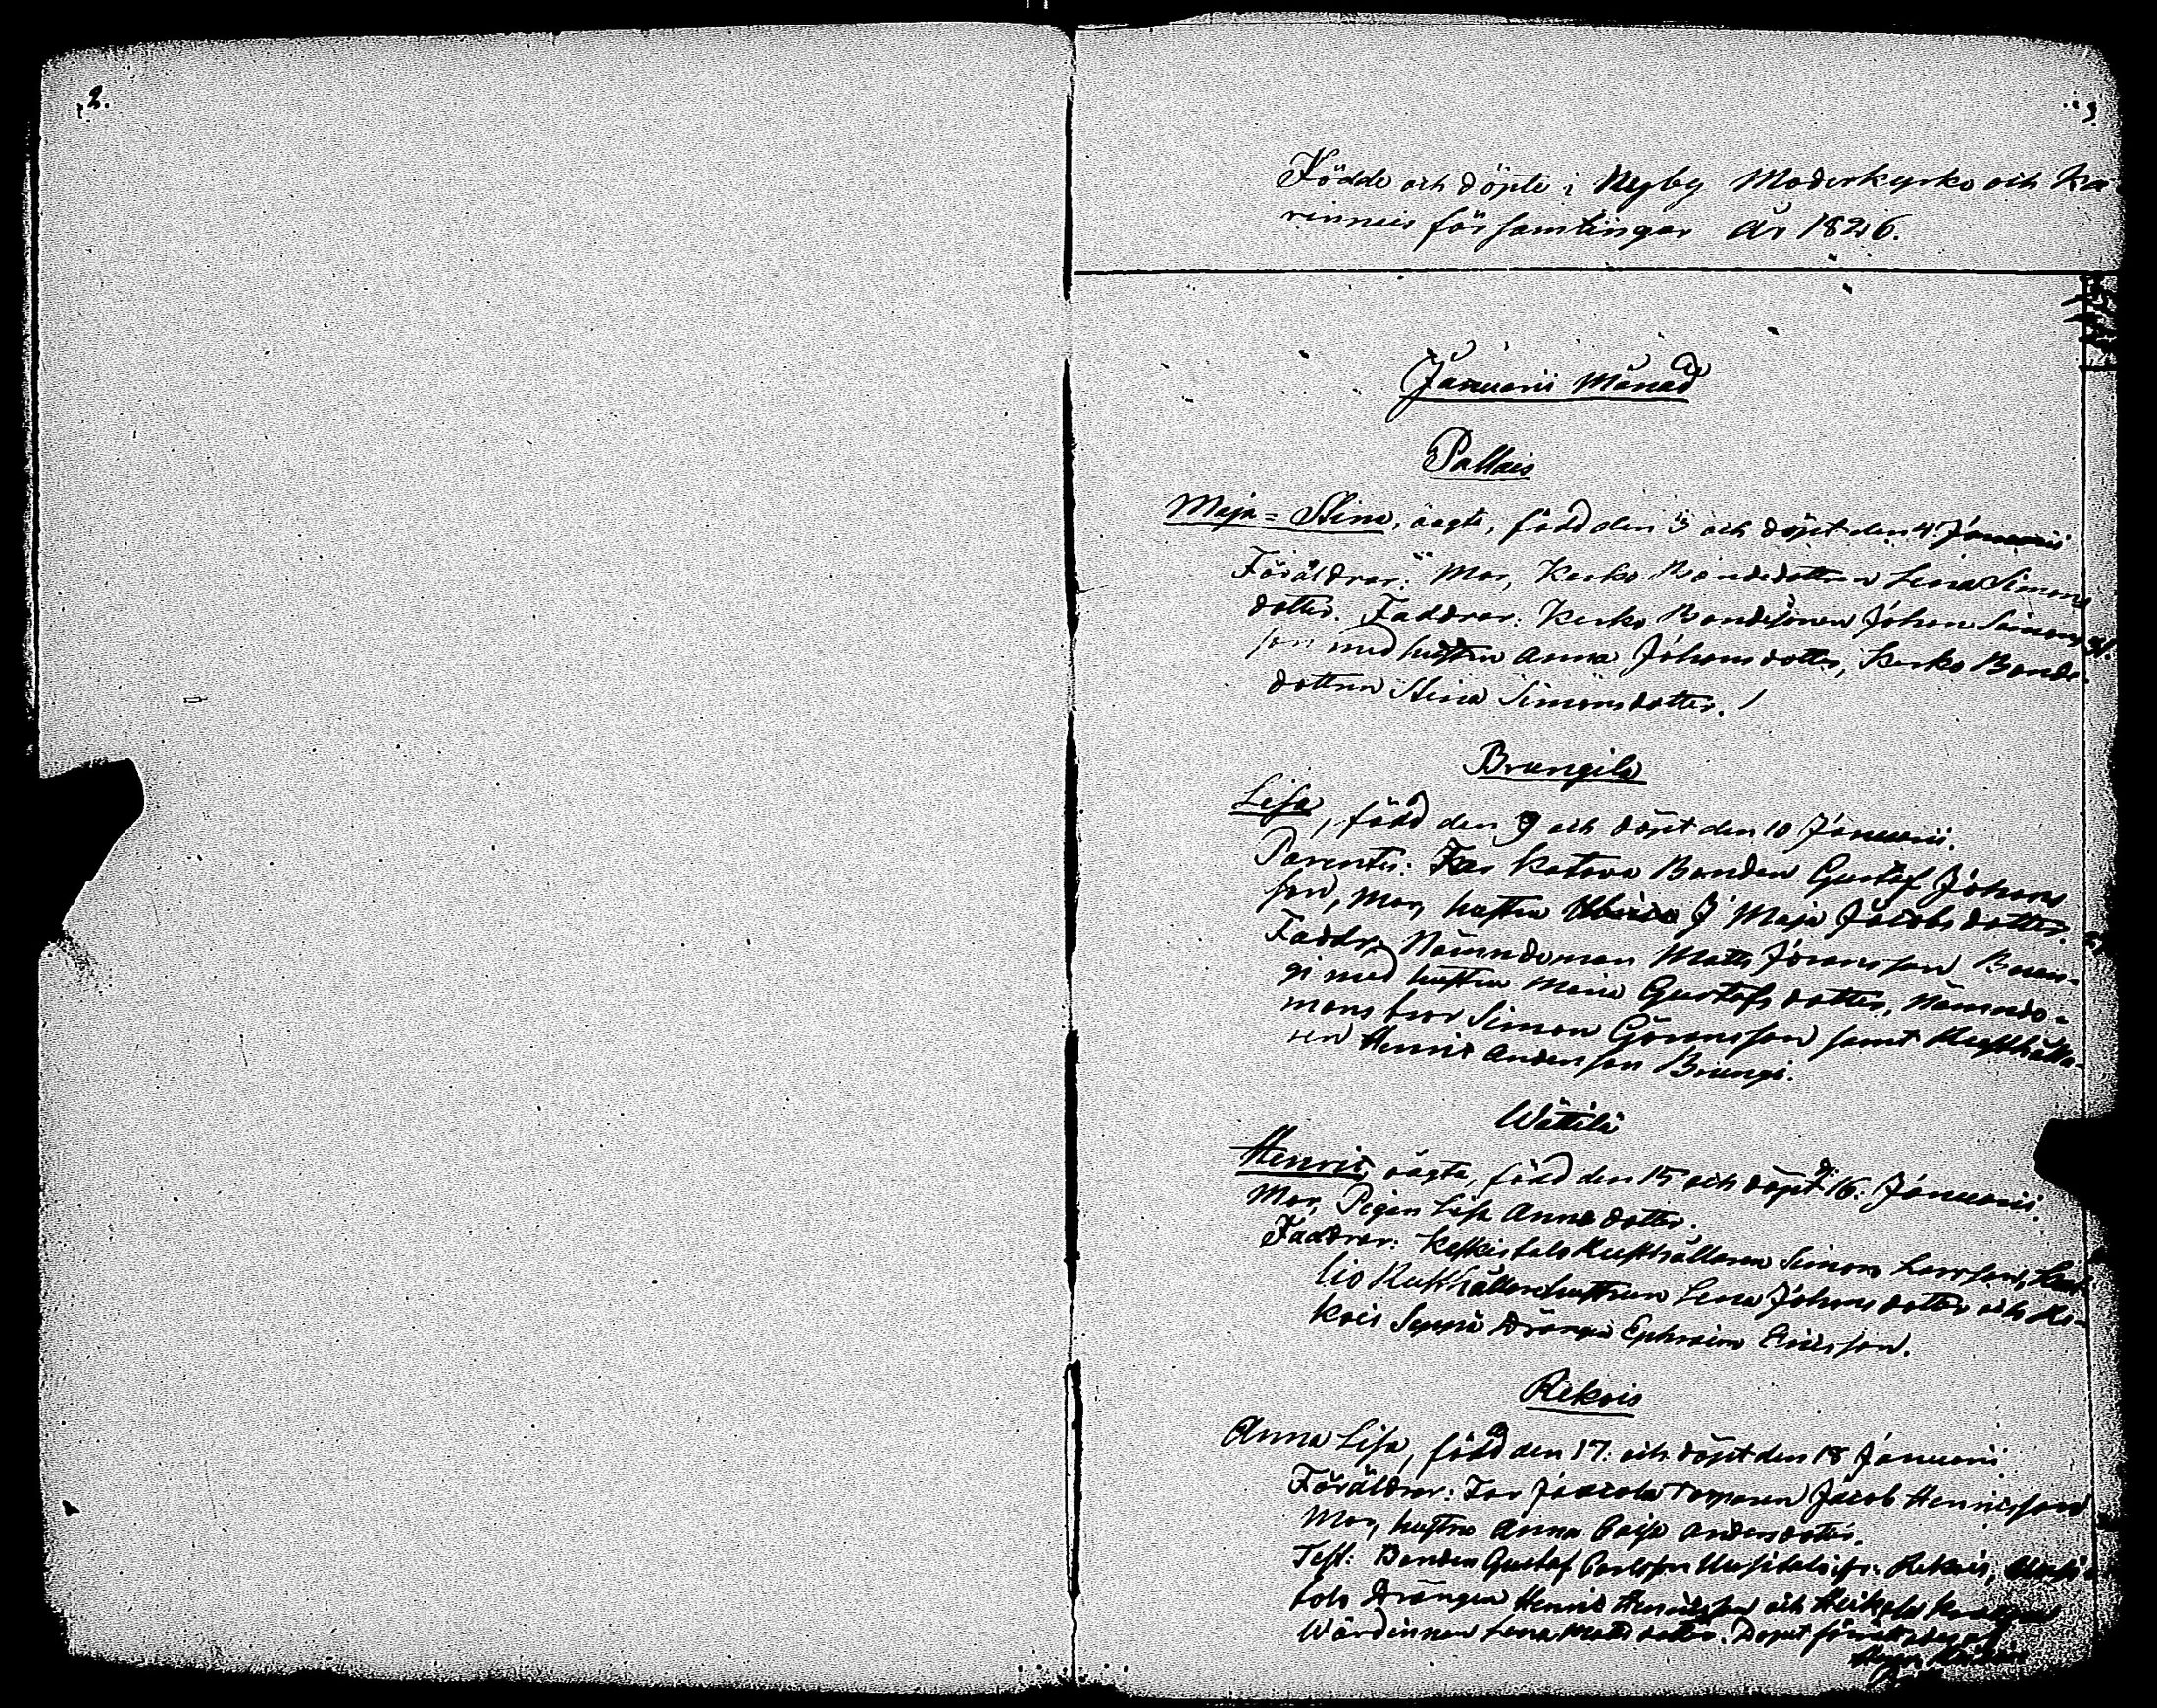 2.
3.
Födde och döpte i Nyby Moderkyrko och Ka-
rinneis församlingar År 1826.
Januarii Månad
Pallais
Maja=Stina, oägta, född den 3 och döpt den 4 Januarii
Föräldrar: Mor, Kerko Bondedottren Lena Simons
dotter. Faddrar: Kerko Bondesonen Johan Simons
son med hustru Anna Johansdotter, Kerko Bonde-
dottren Stina Simonsdotter.
Brungila
Lisa, född den 9 och döpt den 10 Januarii.
Parentes: Far Katova Bonden Gustaf Johans
son, Mor, hustru Maja Jacobsdotter.
Faddr. Nämndeman Matts Jöransson
gi med hustru Maria Gustafsdotter, Nämnde-
mans bror Simon Göransson samt Rusthålla-
ren Henric Andersson Brungi.
Wättilä
Henric, oägta, född den 15 och döpt d: 16. Januarii.
Mor, Pigan Lisa Annæ dotter.
Faddrar: Keskistalo Rusthållaren Simon Larsson,
lio Rusthållarehustrun Lena Johansdotter och Ri-
kois Seppä Drängen Ephraim Ericsson.
Rikois
Anna Lisa, född den 17. och döpt den 18 Januarii
Föräldrar: Far Torparen Jacob Henricsson
Mor, hustru Anna Caisa Andersdotter.
Test: Bonden Gustaf Carlsson Uusitalo ifr. Rikois,
talo Drängen Henric Henricsson och Heikola
Wärdinnan Lena Mattsdotter. Dopet